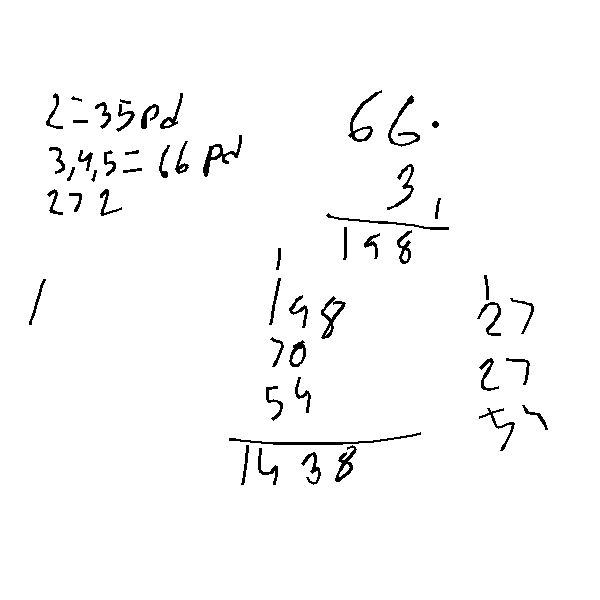 2=35pd
3,4,5=66 pd
27 2
66.
3
1
198
1
198
70
54
1438
1
27
27
54
/